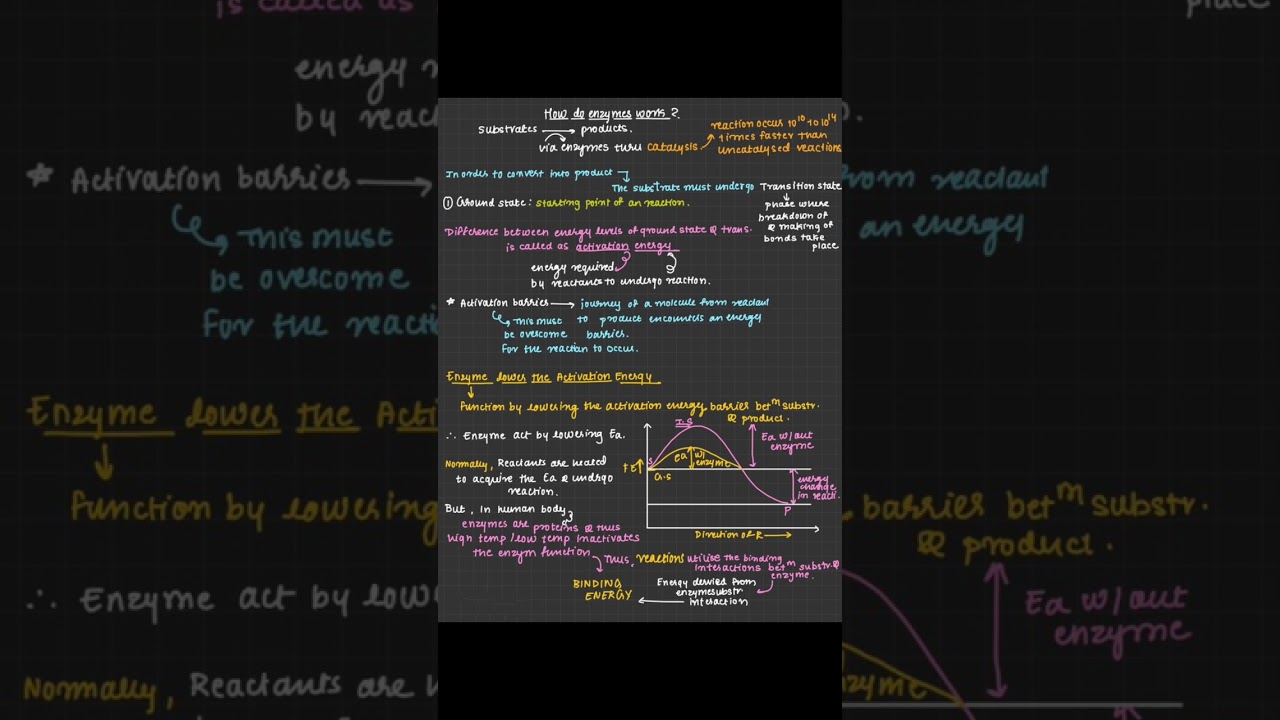 How do enzymes work ?
substrates → products.
via enzymes thru catalysis
reaction occur 10^10 to 10^14
times faster than
uncatalysed reactions
In order to convert into product
The substrate must undergo Transition state
phase where
breakdown of
& making of
bonds take
place
① Ground state: starting point of an reaction.
Difference between energy levels of ground state & trans.
is called as activation energy
energy required
by reactants to undergo reaction.
* Activation barriers → journey of a molecule from reactant
to product encounters an energy
barrier.
This must
be overcome
For the reaction to occur.
Enzyme lower the Activation Energy
Function by lowering the activation energy barrier bet^m substr.
& product.
∴ Enzyme act by lowering Ea.
Normally, Reactants are heated
to acquire the Ea & undrgo
reaction.
But, in human body,
enzymes are proteins & thus
high temp/low temp inactivates
the enzym function
T.S
S
Ea w/
enzyme
G.S
Ea w/out
enzyme
energy
change
in react.
P
Direction of R →
Thus, reactions utilise the binding
interactions bet^m substr &
enzyme.
Energy derived from
enzymesubstr
interaction
BINDING
ENERGY
is called as
place
energy
by reac
* Activation barriers →
This must
be overcome
for the reacti
from reactant
an energy
Enzyme lower the Acti
Function by lowering
barrier bet^m substr.
& product.
∴ Enzyme act by lowe
Ea w/out
enzyme
Normally, Reactants are
zyme